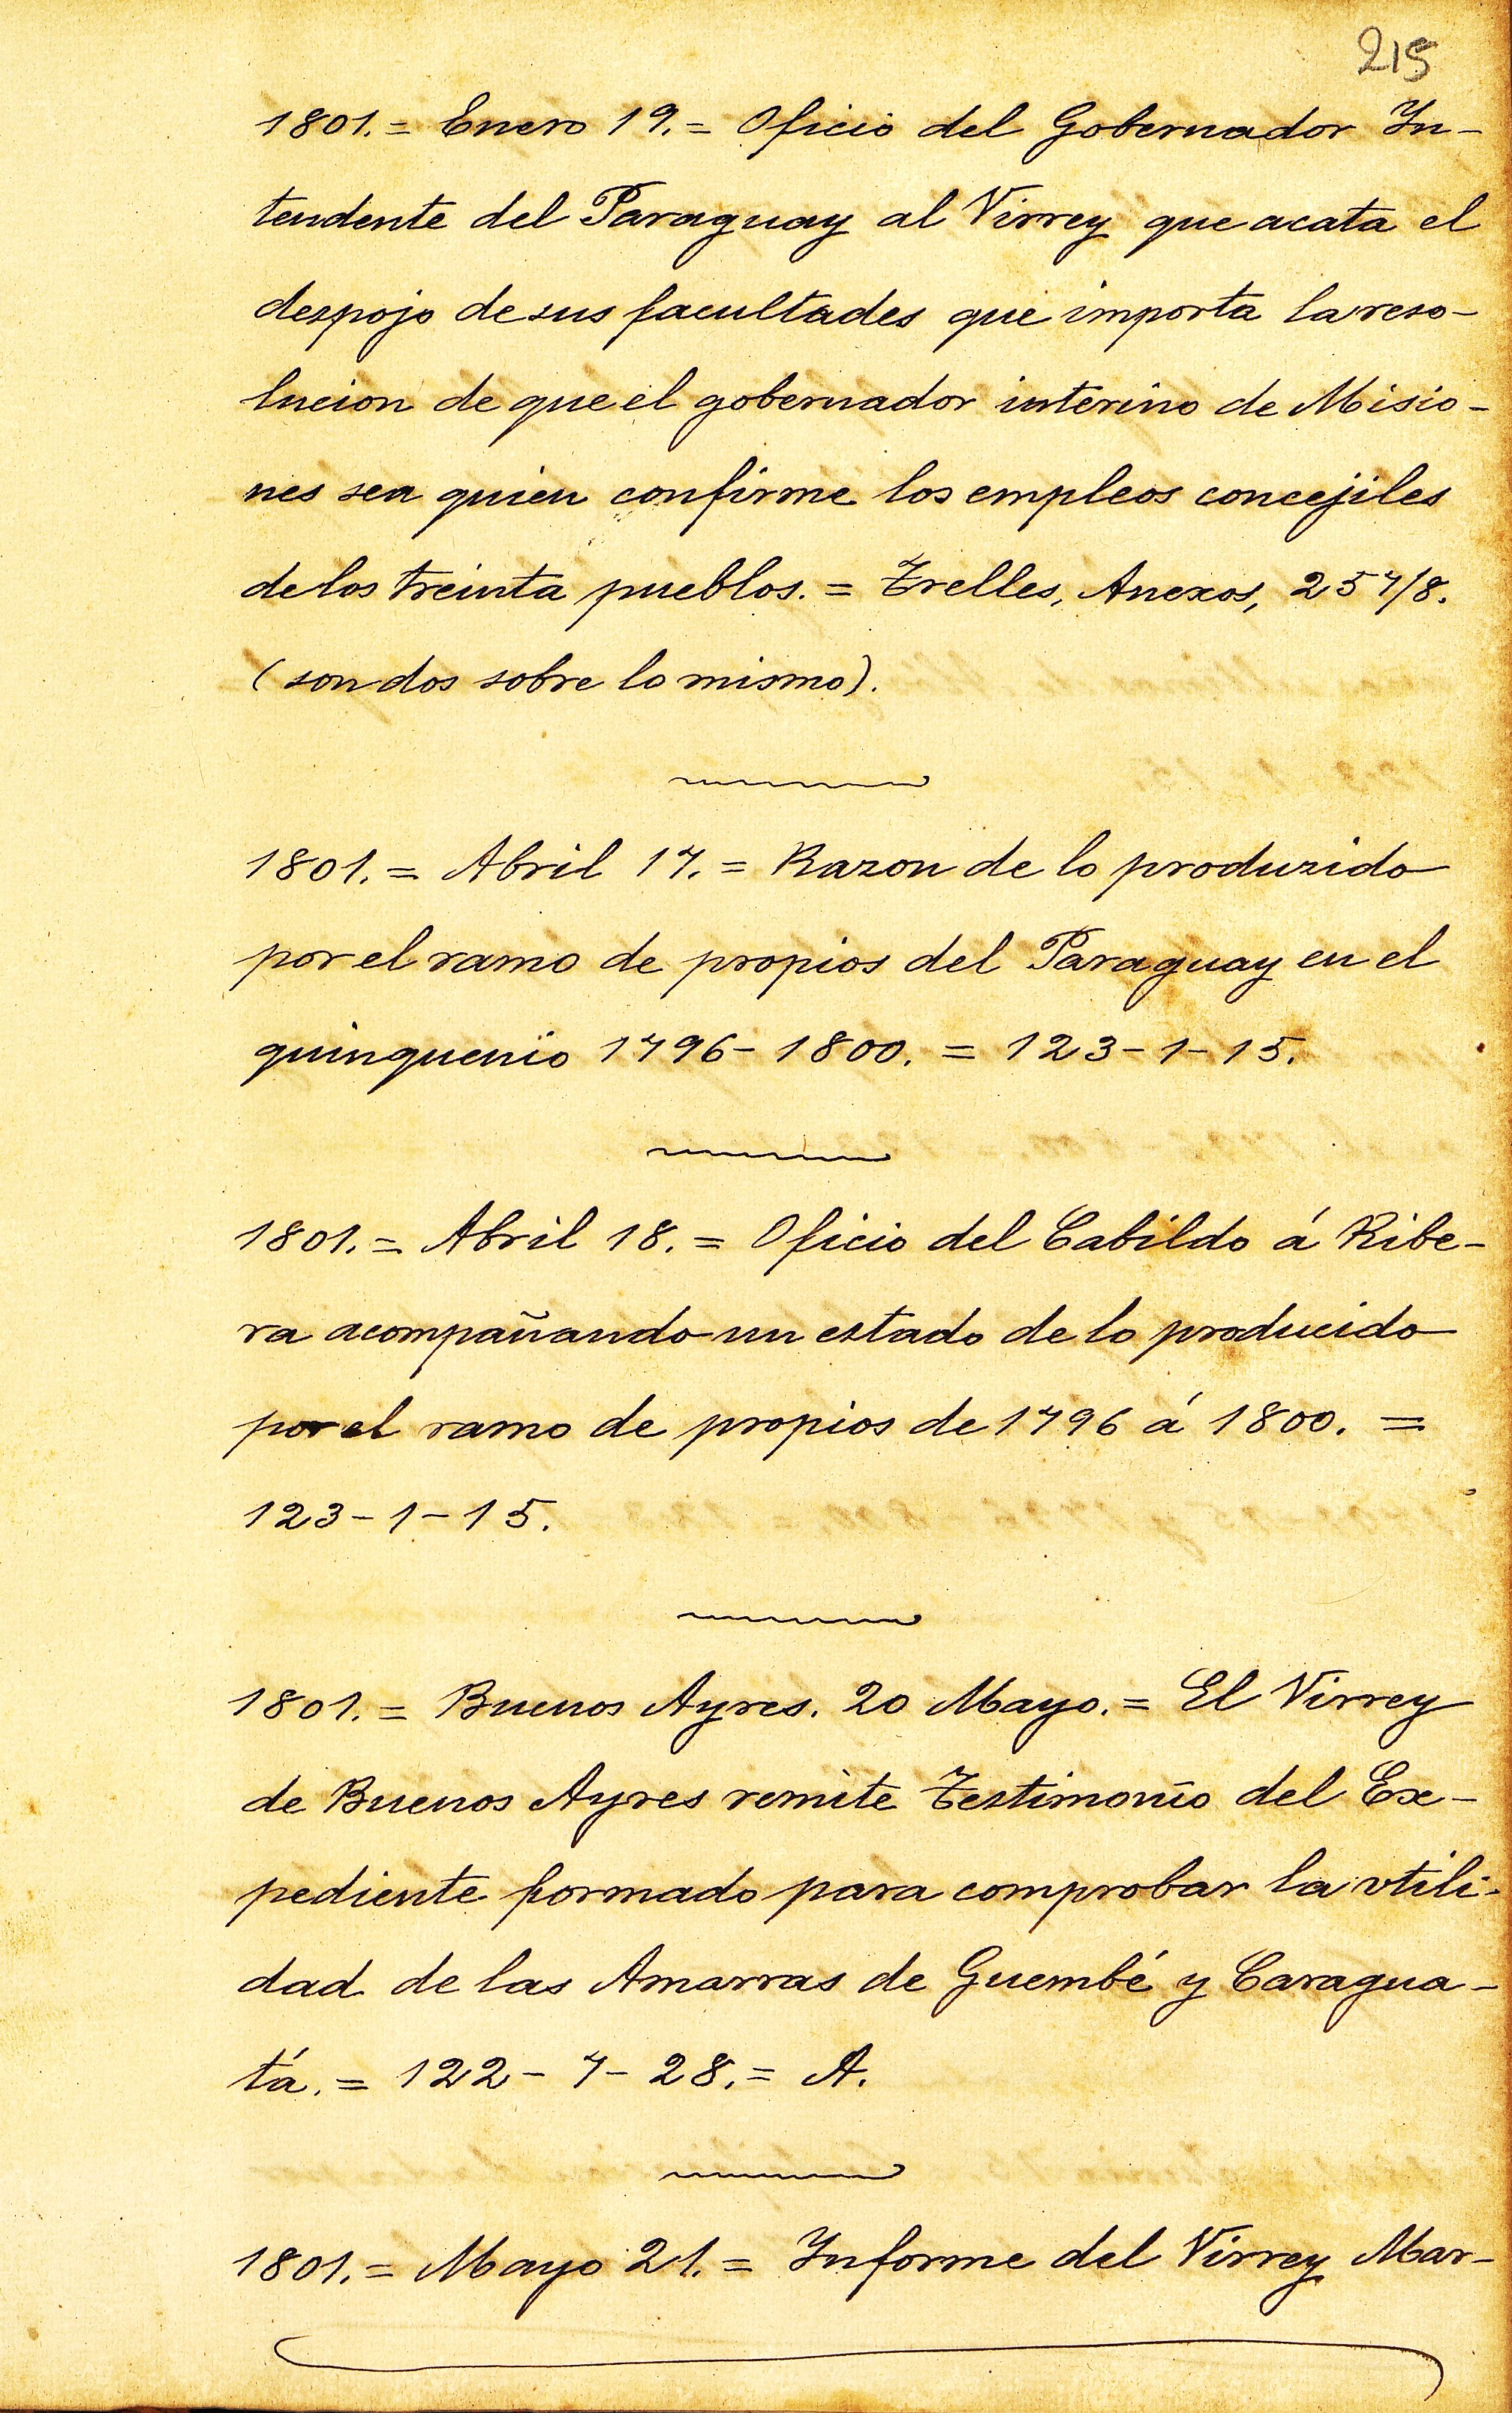 215
1801.= Enero 19.= Oficio del Gobernador In-
tendente del Paraguay al Virrey que acata el
despojo de sus facultades que importa la reso-
lucion de que el gobernador interino de Misio-
nes sea quien confirme los empleos concejiles
de los treinta pueblos. = Trelles, Anexos, 257/8.
(son dos sobre lo mismo).
1801. = Abril 17. = Razon de lo produzido
por el ramo de propios del Paraguay en el
quinquenio 1796-1800. = 123-1-15.
1801. = Abril 18. = Oficio del Cabildo á Ribe-
ra acompañando un estado de lo producido
por el ramo de propios de 1796 á 1800. =
123-1-15.
1801. = Buenos Ayres. 20 Mayo. = El Virrey
de Buenos Ayres remite Testimonio del Ex-
pediente formado para comprobar la vtili-
dad de las Amarras de Guembé y Caragua-
tá. = 122-7-28. = A.
1801. = Mayo 21. = Informe del Virrey Mar-